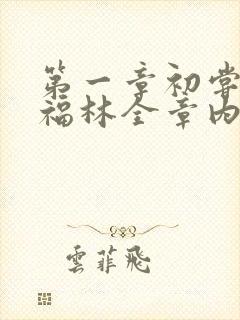 第一章初尝
福林全章内
雲菲飛